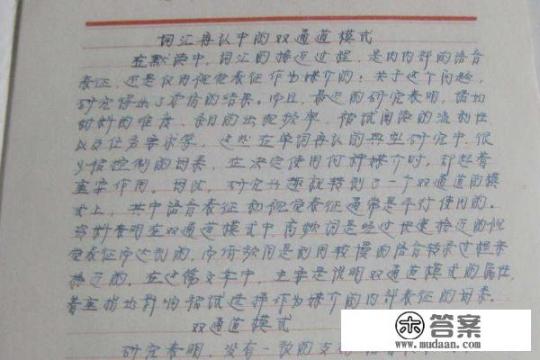 词汇再认中的双通道模式
在默读中,词汇的接近过程,是由内部的语音
表征,还是仅由视觉表征作为媒介的?关于这个问题,
研究得出了矛盾的结果。而且,最近的研究表明,诸如
材料的难度,条目的出现频率,被试阅读的流利性
以及任务要求等,这些在单词再认的典型研究中,很
少被控制的因素,在决定使用何种媒介时,却起着
重要作用。因此,研究兴趣就转到了一个双通道的模
式上,其中语音表征和视觉表征通常是平行使用的。
资料表明在双通道模式中高频词是经过快速接近的视
觉表征而达到的,而低频词是利用较慢的语音转录过程来
接近的。在这篇文章中,主要是说明双通道模式的属性,
着重指出影响被试选择作为媒介的内部表征的因素。
双通道模式
研究表明,没有一致的支
答案
www.mudaan.com